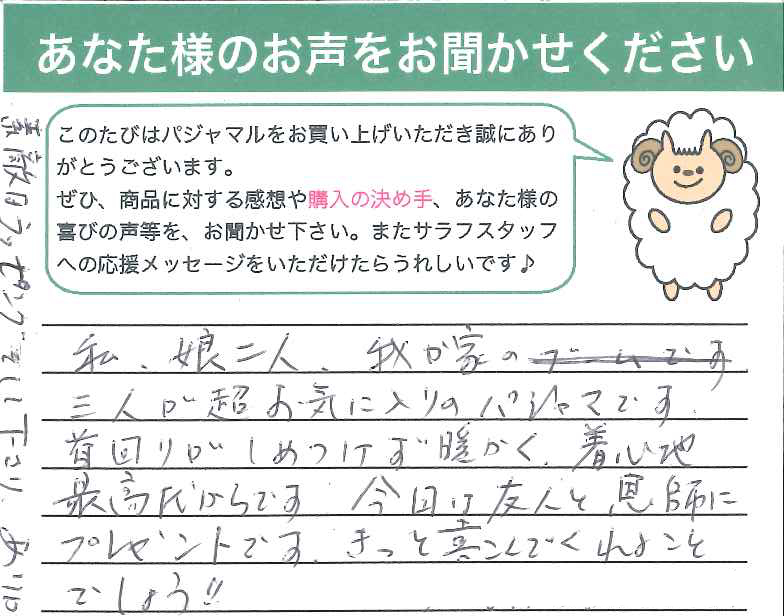 あなた様のお声をお聞かせください
このたびはパジャマルをお買い上げいただき誠にあり
がとうございます。
ぜひ、商品に対する感想や購入の決め手、あなた様の
喜びの声等を、お聞かせ下さい。またサラフスタッフ
への応援メッセージをいただけたらうれしいです♪
私、娘二人、我が家のブームです
三人が超お気に入りのパジャマです。
首回りがしめつけず暖かく、着心地
最高だからです 今回は友人と恩師に
プレゼントです。きっと喜こんでくれることと
でしょう!!
素敵なラッピングをして下さり、あり